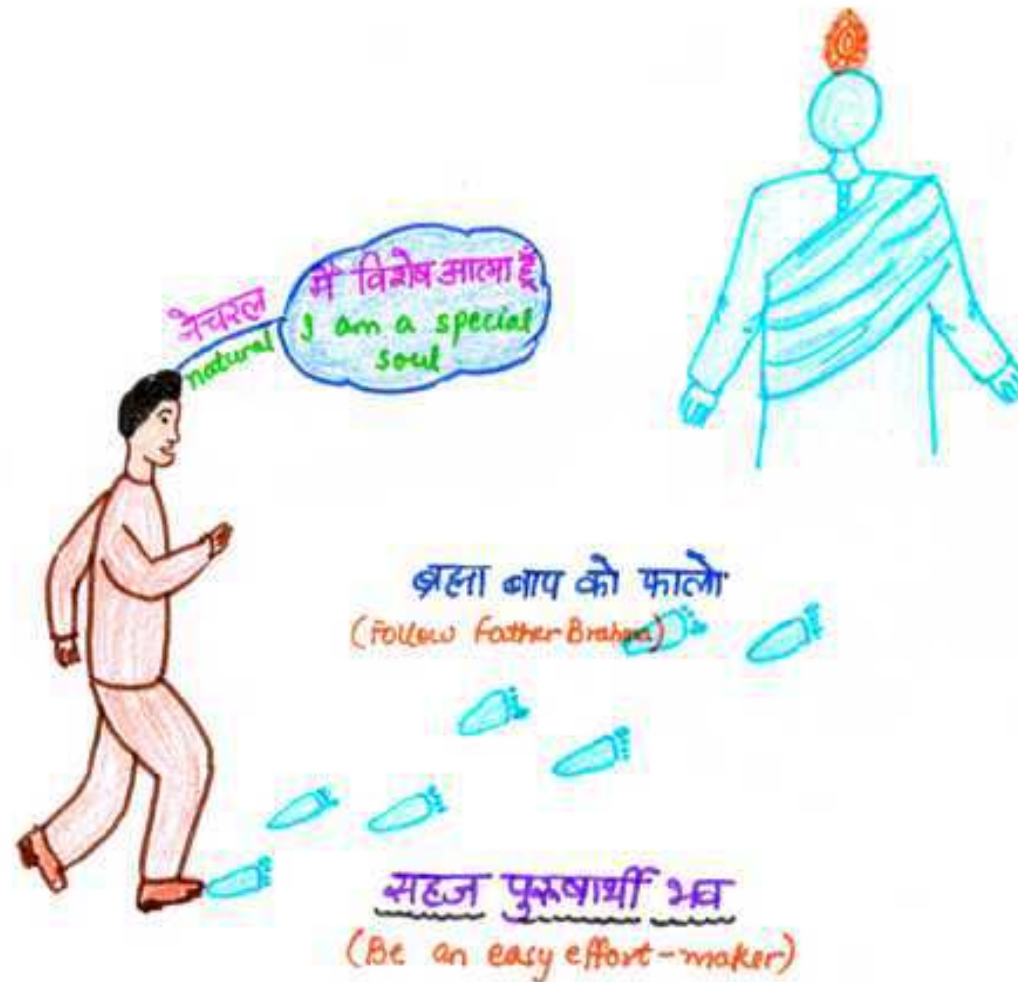 नेचरल
natural
मैं विशेष आत्मा हूँ
I am a special
soul
ब्रह्मा बाप को फालो
(Follow Father Brahma)
सहज पुरुषार्थी भव
(Be an easy effort-maker)